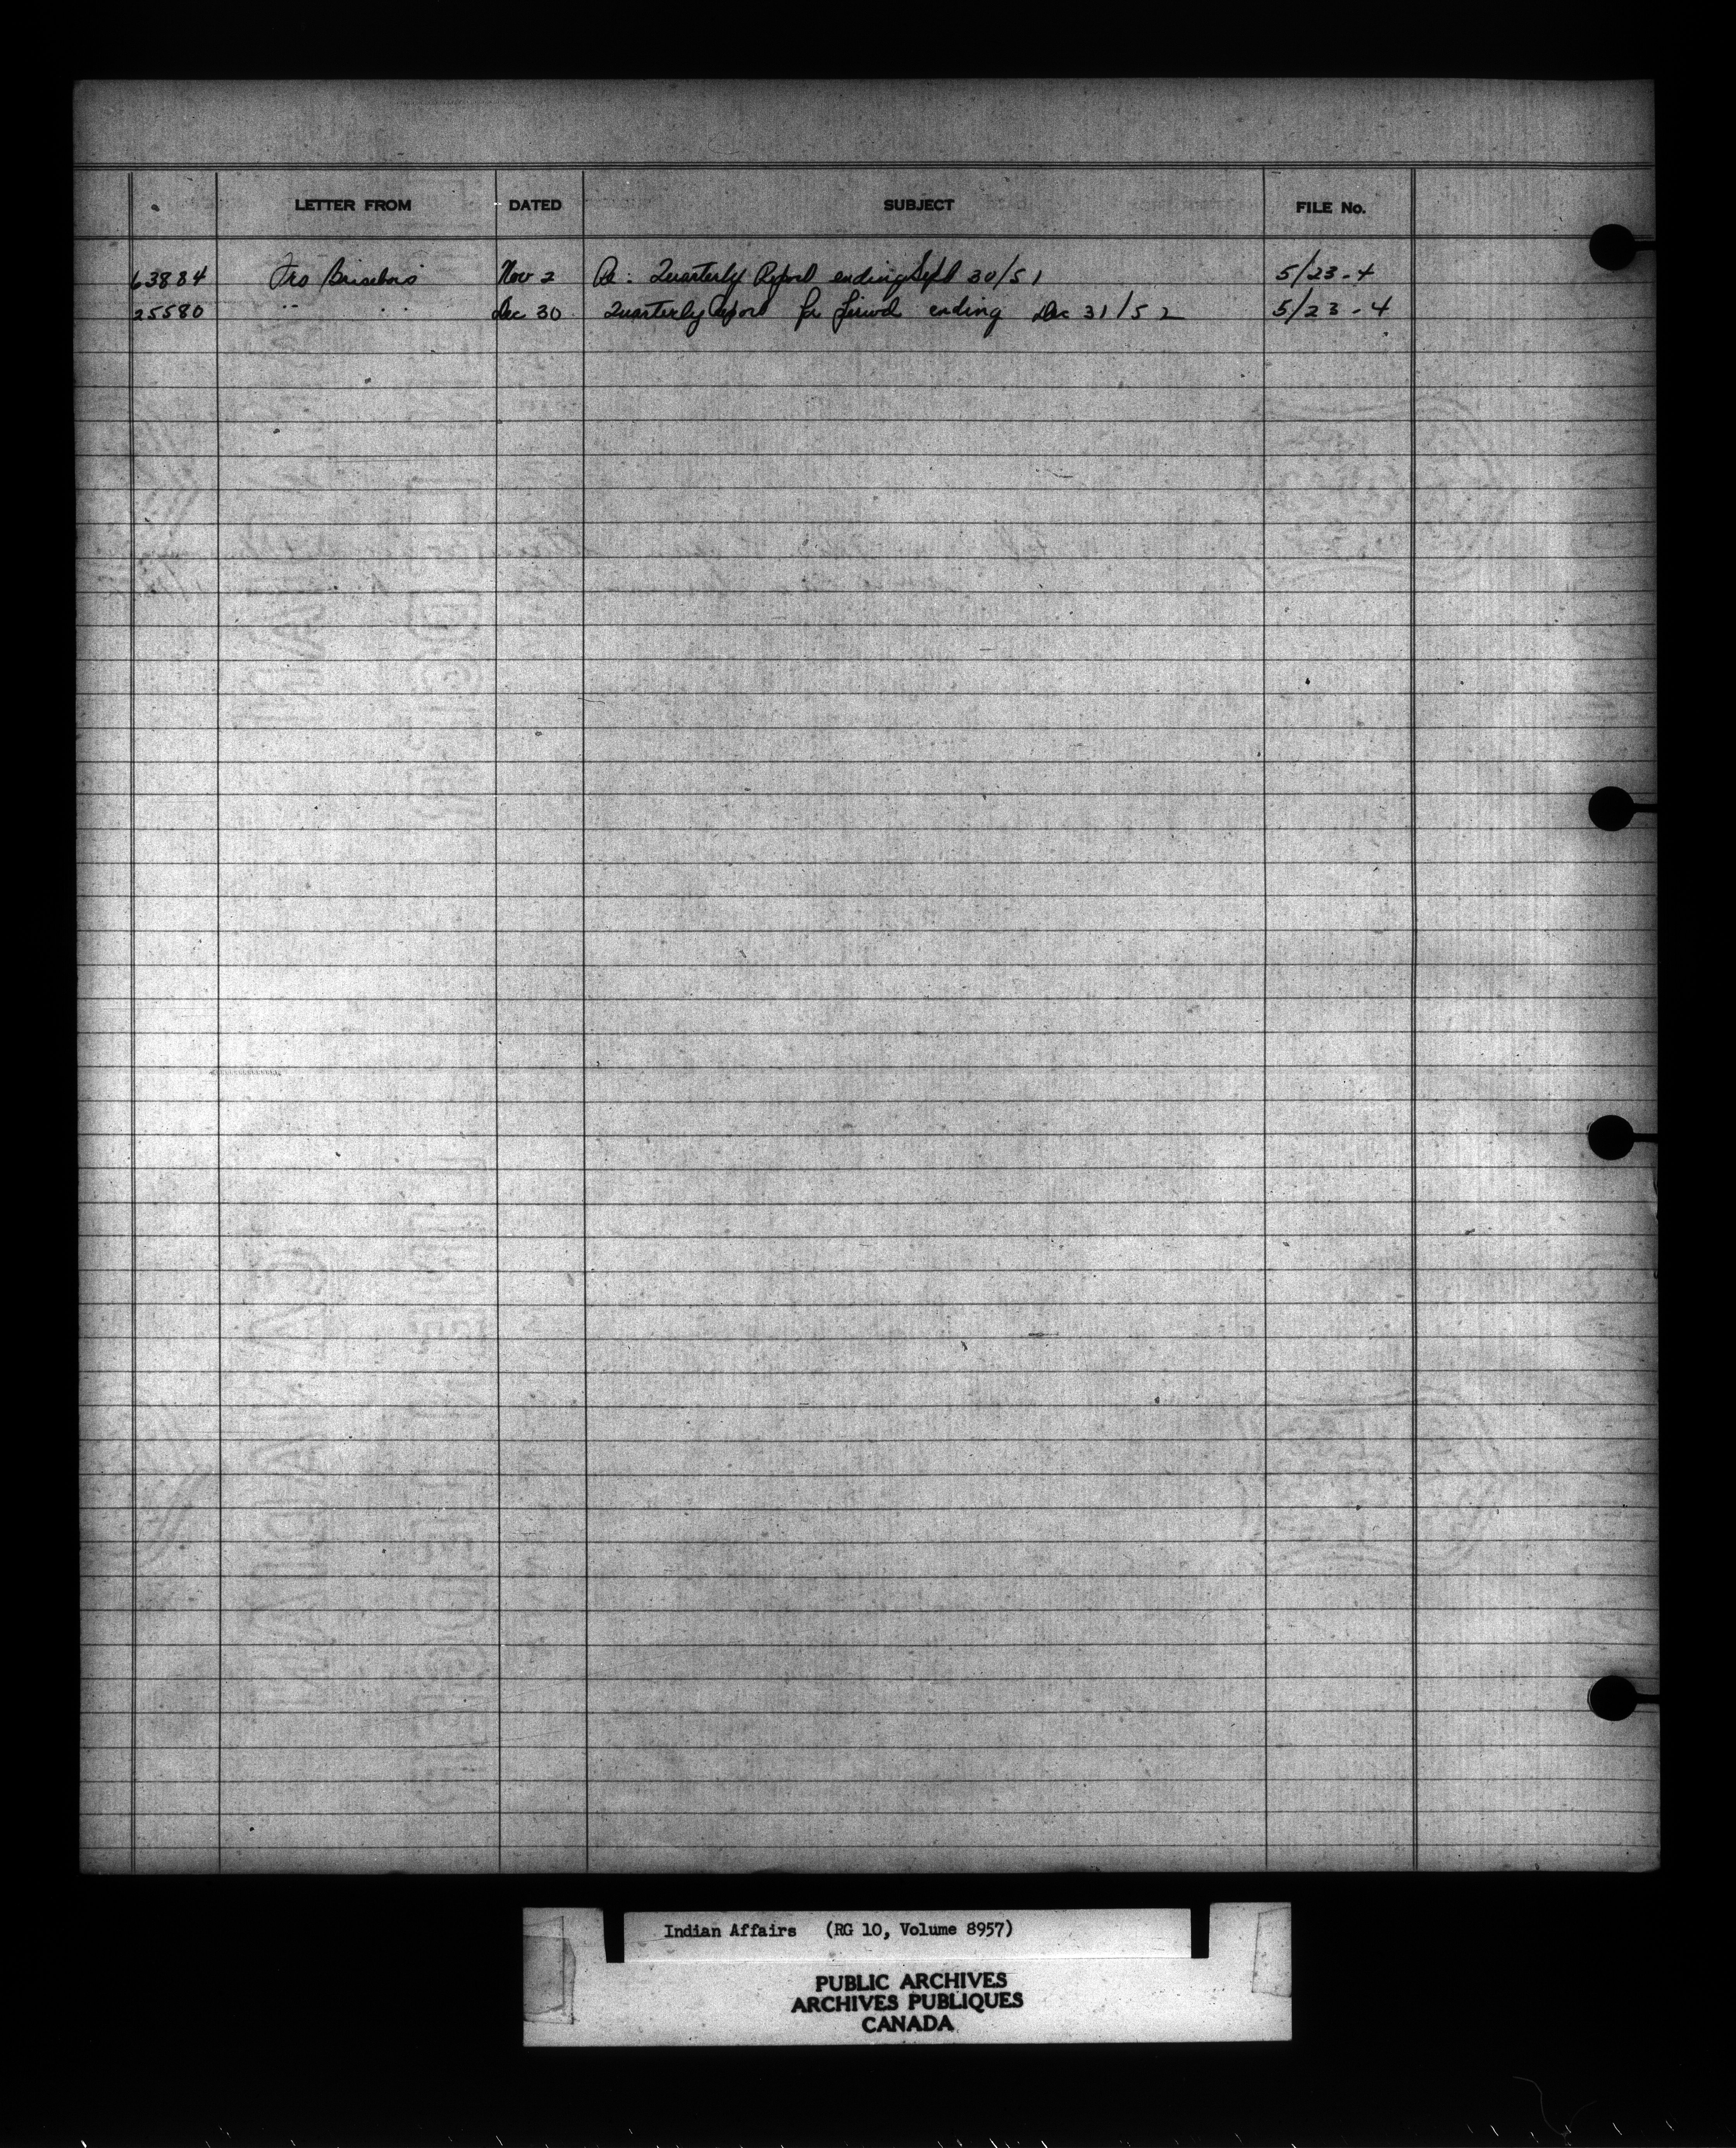 LETTER FROM DATED SUBJECT FILE No.
63884 Nov 2 Re: Quarterly Report ending Sept 30/51 5/23-4
25580 " " Dec 30 Quarterly Report for period ending Dec 31/52 5/23-4
Indian Affairs (RG 10, Volume 8957)
PUBLIC ARCHIVES
ARCHIVES PUBLIQUES
CANADA